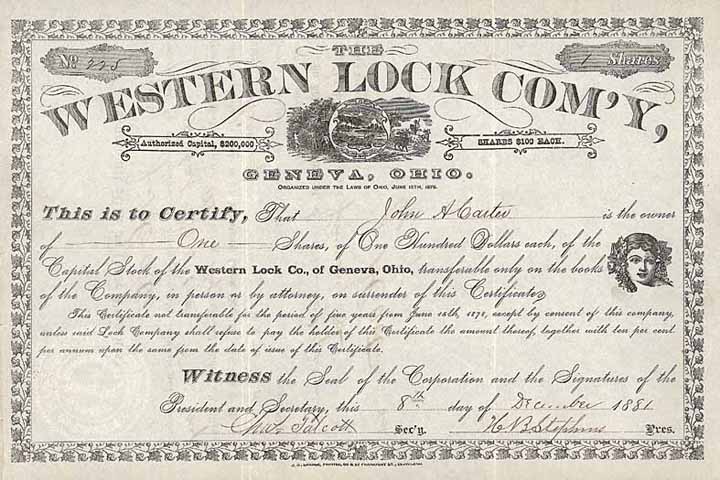 THE
No. 225
1 Shares
WESTERN LOCK COM'Y,
Authorized Capital, $200,000
SHARES $100 EACH.
GENEVA, OHIO.
ORGANIZED UNDER THE LAWS OF OHIO, JUNE 15TH, 1878.
This is to Certify, That John A Carter is the owner
of One Shares, of One Hundred Dollars each, of the
Capital Stock of the Western Lock Co., of Geneva, Ohio, transferable only on the books
of the Company, in person or by attorney, on surrender of this Certificate.
This Certificate not transferable for the period of five years from June 15th, 1878, except by consent of this company,
unless said Lock Company shall refuse to pay the holder of this Certificate the amount thereof, together with ten per cent
per annum upon the same from the date of issue of this Certificate.
Witness the Seal of the Corporation and the Signatures of the
President and Secretary, this 8th day of December 1881
Chas Talcott Sec'y. N B Stephens Pres.